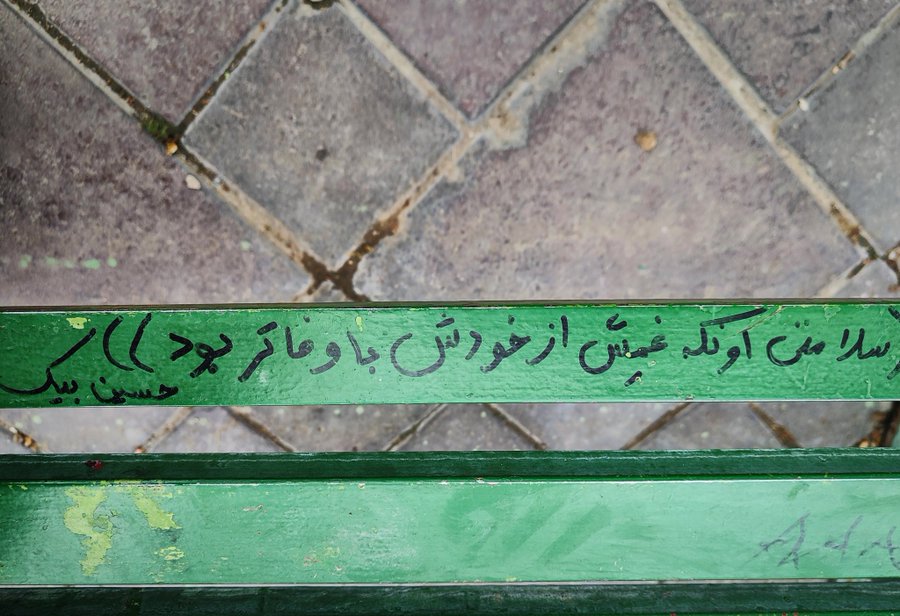 سلامتی اونکه غمش از خودش با وفاتر بود))
حسین بیک